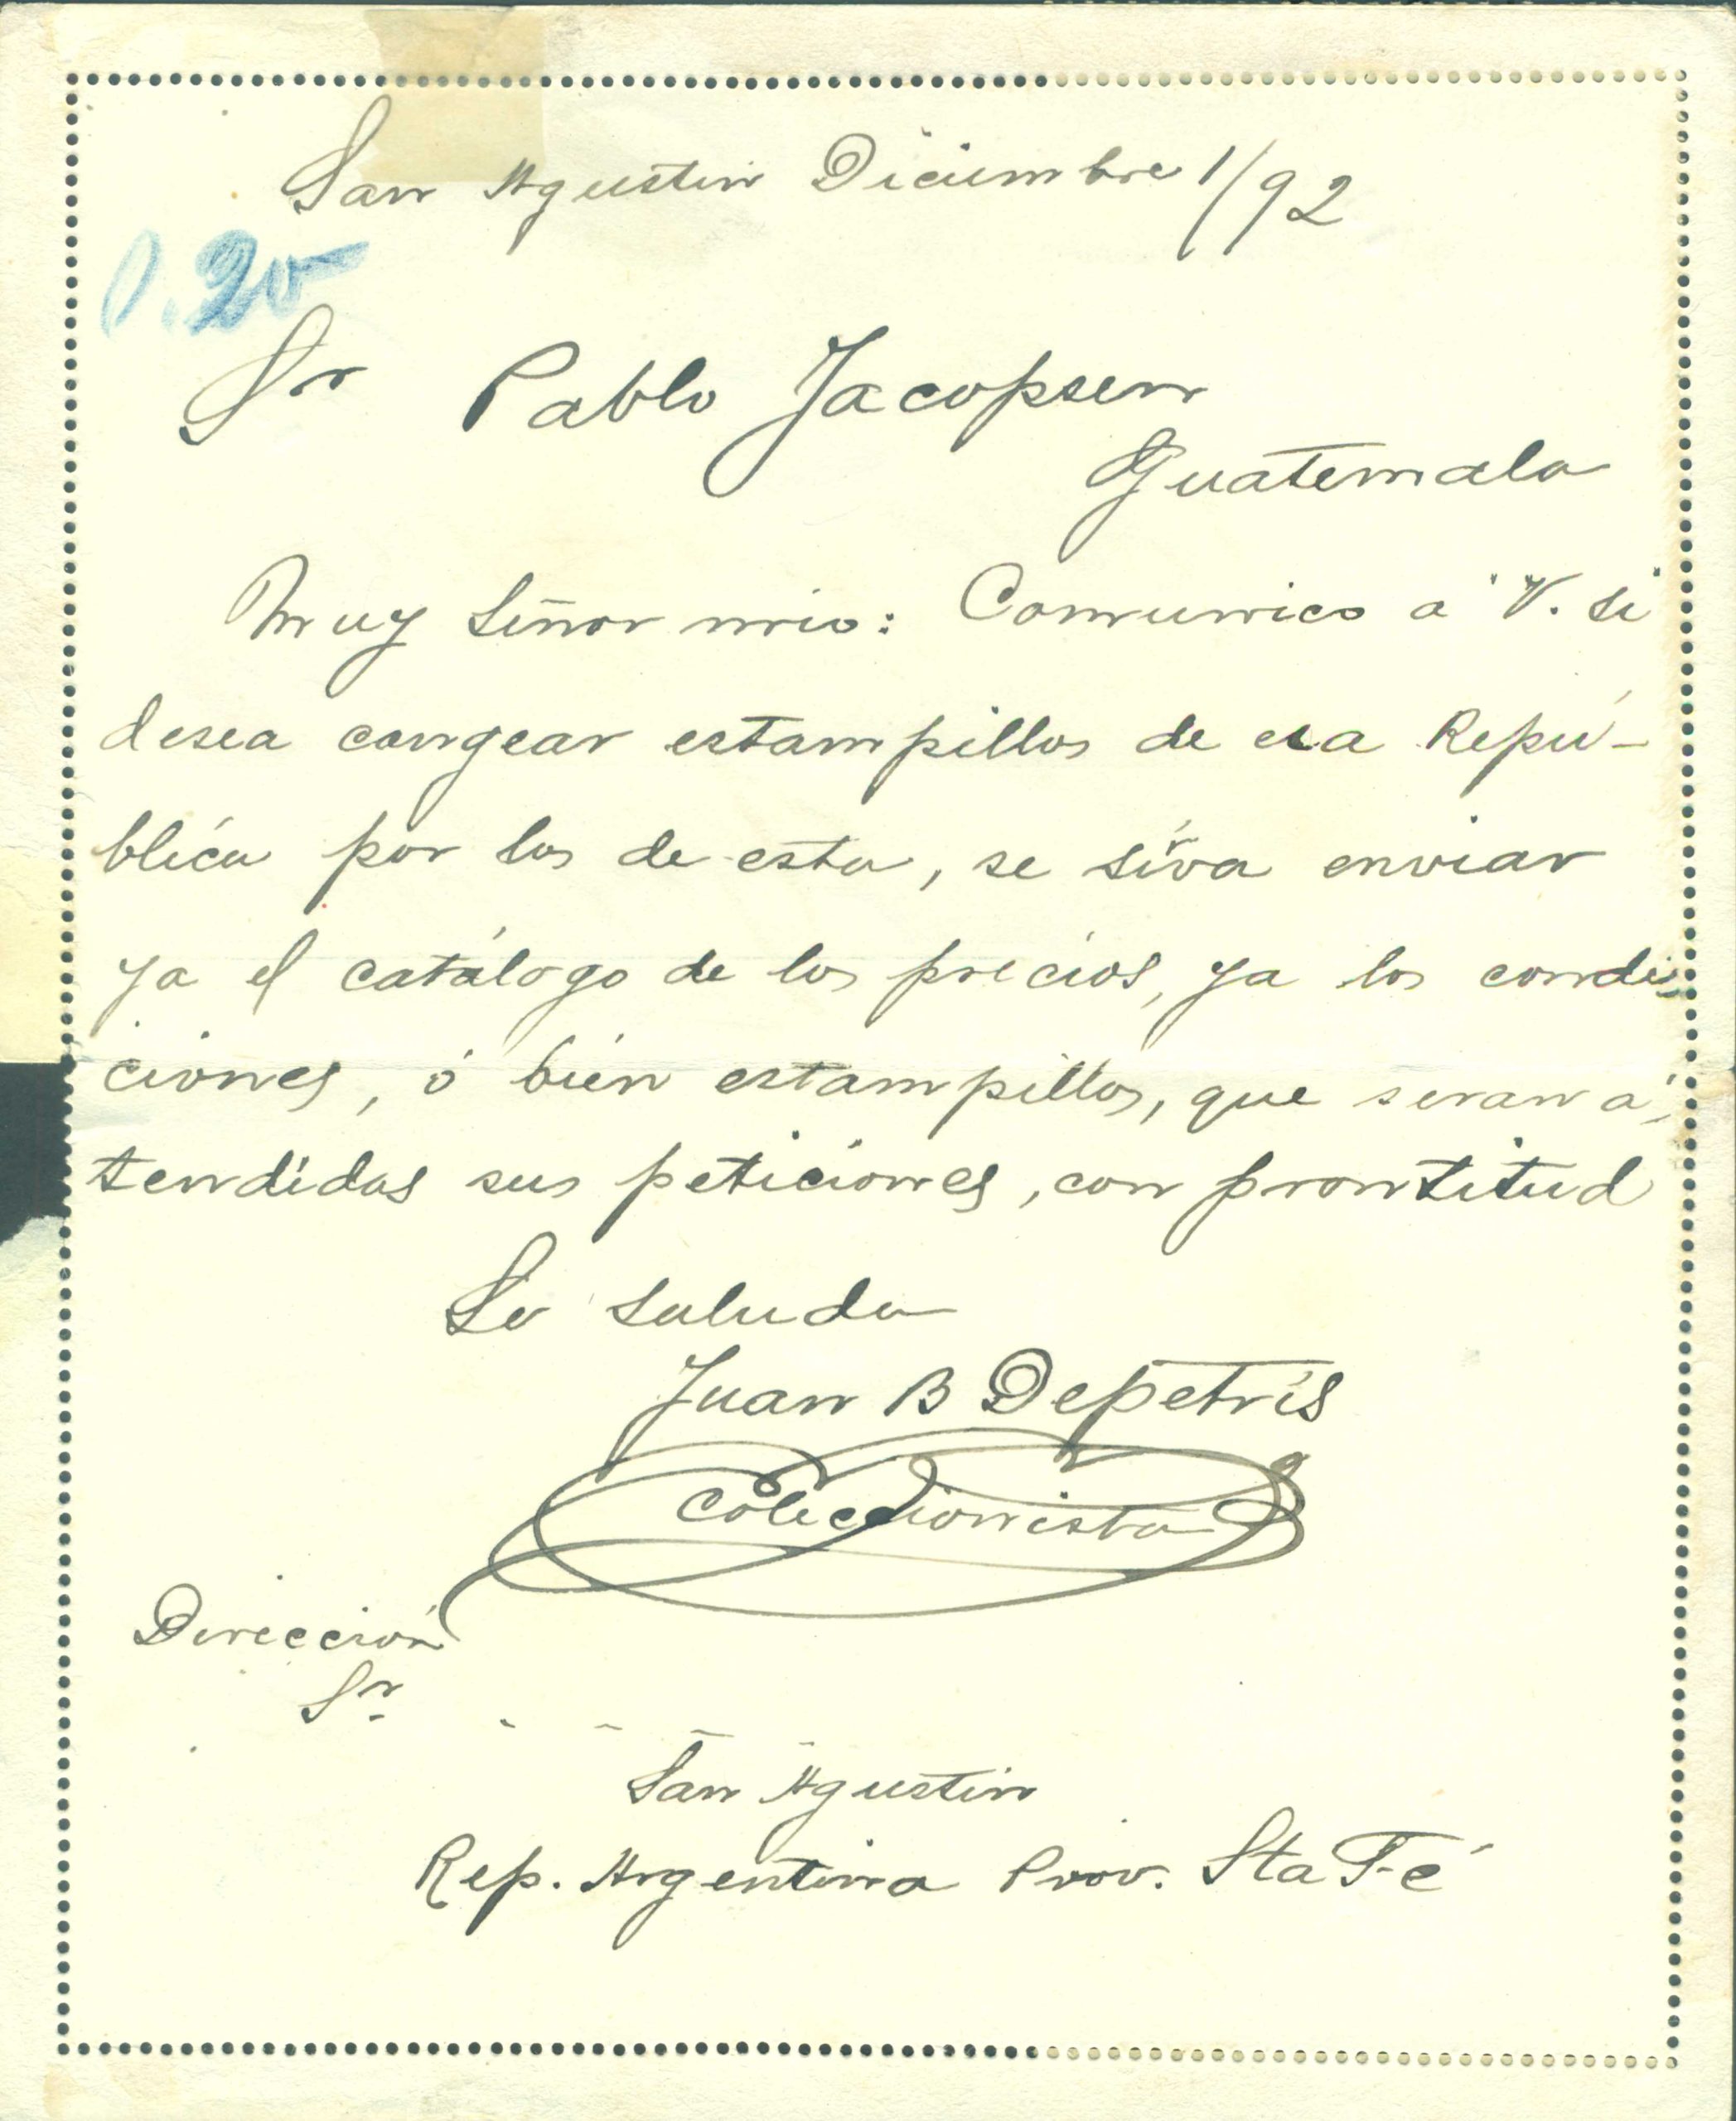 San Agustin Diciembre 1/92
0.20
Sr Pablo Jacopsen
Guatemala
Muy Señor mio: Comunico a V. si
desea cangear estampillas de esa Repú-
blica por las de esta, se sirva enviar
ya el catálogo de los precios, ya las condi-
ciones, ó bien estampillas, que seran a-
tendidas sus peticiones, con prontitud
Lo saluda
Juan B Depetris
Coleccionista
Dirección
Sr. - - - -
San Agustin
Rep. Argentina Prov. Sta Fé